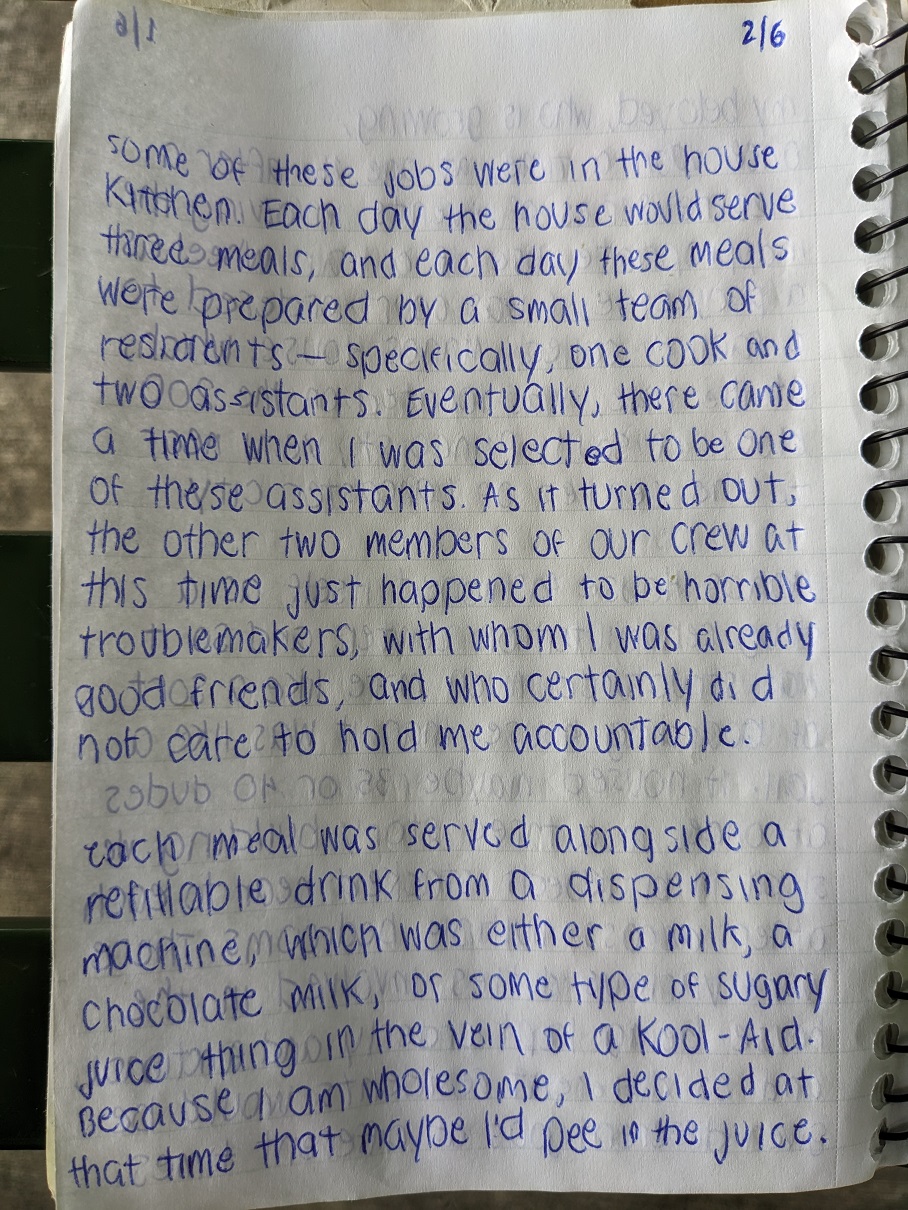 2/6
some of these jobs were in the house
Kitchen. Each day the house would serve
three meals, and each day these meals
were prepared by a small team of
residents — specifically, one cook and
two assistants. Eventually, there came
a time when I was selected to be one
of these assistants. As it turned out,
the other two members of our crew at
this time just happened to be horrible
troublemakers, with whom I was already
good friends, and who certainly did
not care to hold me accountable.
Each meal was served alongside a
refillable drink from a dispensing
machine, which was either a milk, a
chocolate milk, or some type of sugary
juice thing in the vein of a Kool-Aid.
Because I am wholesome, I decided at
that time that maybe I'd pee in the juice.